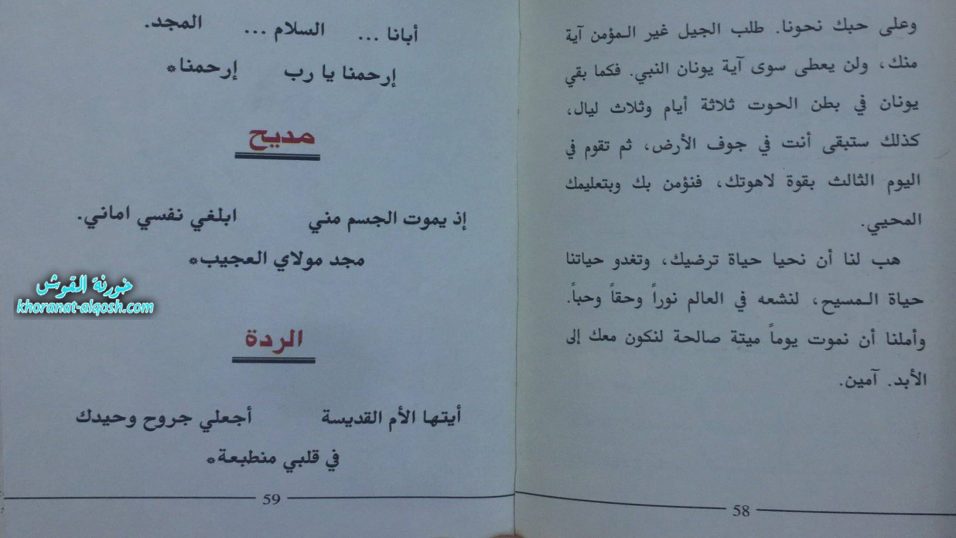 وعلى حبك نحونا. طلب الجيل غير المؤمن آية
منك، ولن يعطى سوى آية يونان النبي. فكما بقي
يونان في بطن الحوت ثلاثة أيام وثلاث ليال،
كذلك ستبقى أنت في جوف الأرض، ثم تقوم في
اليوم الثالث بقوة لاهوتك، فنؤمن بك وبتعليمك
المحيي.
هب لنا أن نحيا حياة ترضيك، وتغدو حياتنا
حياة المسيح، لنشعه في العالم نوراً وحقاً وحباً.
وأملنا أن نموت يوماً ميتة صالحة لنكون معك إلى
الأبد. آمين.
58
أبانا ... السلام ... المجد.
إرحمنا يا رب إرحمنا*
مديح
إذ يموت الجسم مني ابلغي نفسي اماني.
مجد مولاي العجيب*
الردة
أيتها الأم القديسة أجعلي جروح وحيدك
في قلبي منطبعة*
59
خورنة القوش
khoranat-alqosh.com